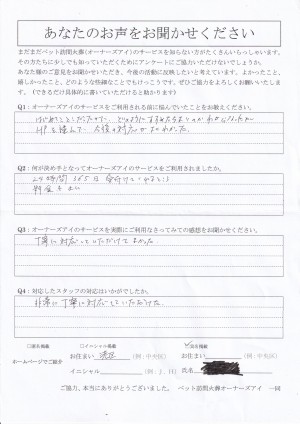 あなたのお声をお聞かせください
まだまだペット訪問火葬(オーナーズアイ)のサービスを知らない方がたくさんいらっしゃいます。
その方たちに少しでも知っていただくためにアンケートにご協力いただけないでしょうか。
あなた様のご意見をお聞かせいただき、今後の活動に反映したいと考えています。よかったこと、
嬉しかったこと、どのような些細なことでもけっこうです。ぜひご協力をよろしくお願いいたします。
(できるだけ具体的に書いていただけると助かります)
Q1:オーナーズアイのサービスをご利用される前に悩んでいたことをお教えください。
はじめてのことだったので、どのように
HPを読んで、
Q2:何が決め手となってオーナーズアイのサービスをご利用されましたか。
24時間 365日 受付けていること
料金
Q3:オーナーズアイのサービスを実際にご利用になさってみての感想をお聞かせください。
丁寧に対応していただけてよかった。
Q4:対応したスタッフの対応はいかがでしたか。
非常に丁寧に対応していただけた。
□匿名掲載
□イニシャル掲載
□実名掲載
ホームページでご紹介
お住まい
(例:中央区)
お住まい
(例:中央区)
イニシャル
(例:J、H)
氏名
ご協力、本当にありがとうございました。 ペット訪問火葬オーナーズアイ 一同